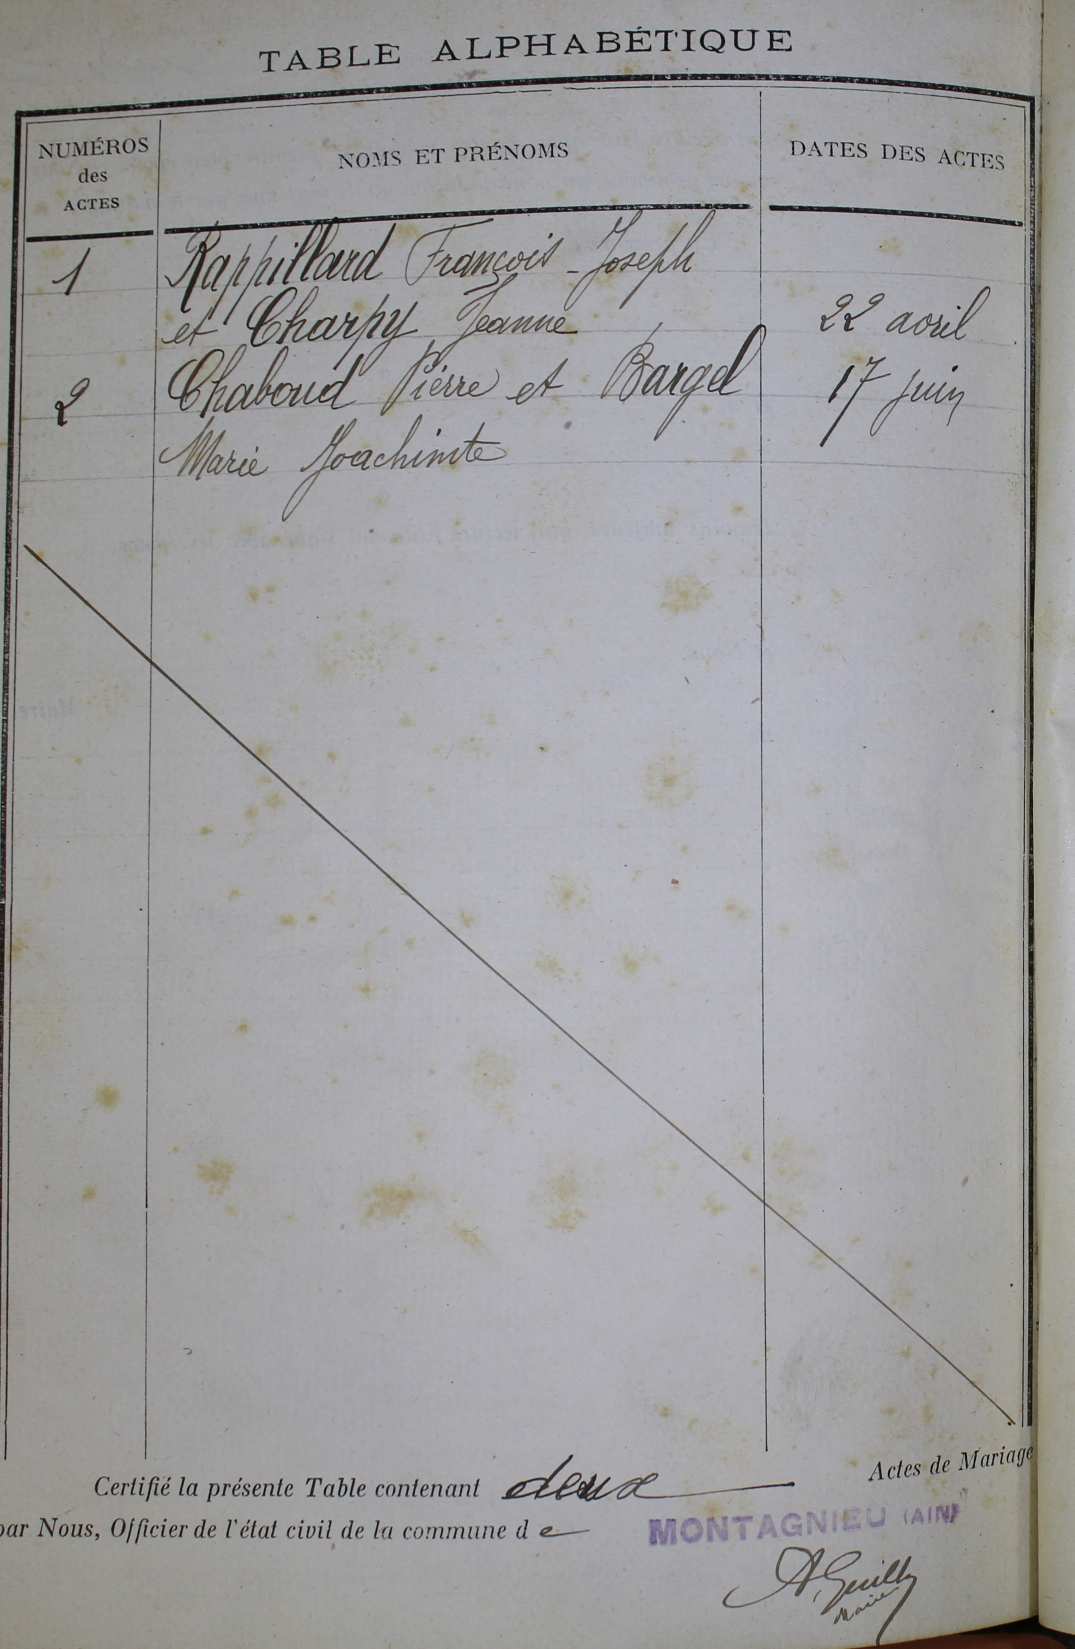 TABLE ALPHABÉTIQUE
NUMÉROS des ACTES
NOMS ET PRÉNOMS
DATES DES ACTES
1 Rappillard François-Joseph
et Charpy Jeanne 22 avril
2 Chaboud Pierre et Bargel 17 juin
Marie Joachimite
Certifié la présente Table contenant deux Actes de Mariage
par Nous, Officier de l'état civil de la commune de MONTAGNIEU (AIN)
Maire